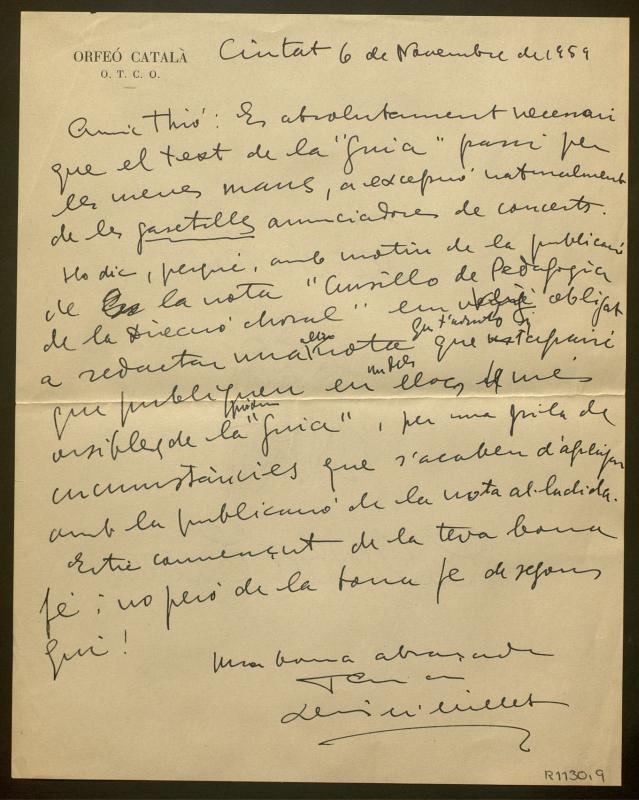 ORFEÓ CATALÀ
O. T. C. O.
Ciutat 6 de Novembre de 1959
Amic Thió: Es absolutament necessari
que el text de la "Guia" passi per
les meves mans, a excepció naturalment
de les gasetilles anunciadores de concerts.
Ho dic, perquè, amb motiu de la publicació
de la nota "Cursillo de Pedagogia
de la Direcció choral" em obligat
a redactar una altra nota que
que t'adjunto
que publiquen en llocs més
un dels
visibles de la "Guia", per una pila de
pròxim
circumstàncies que s'acaben d'aplujar
amb la publicació de la nota al·ludida.
Estic convençut de la teva bona
fe i no però de la bona fe de segons
qui!
Una bona abraçada
Lluís Mª Millet
R1130,9